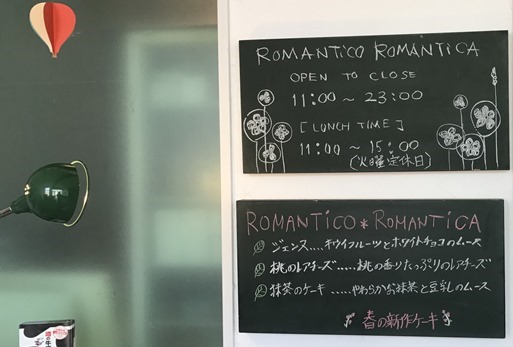 ROMANTICO ROMANTICA
OPEN TO CLOSE
11:00 ~ 23:00
[LUNCH TIME]
11:00 ~ 15:00
(火曜定休日)
ROMANTICO*ROMANTICA
ジェンス.....キウイフルーツとホワイトチョコのムース
桃のレアチーズ.....桃の香りたっぷりのレアチーズ
抹茶のケーキ.....やわらかな抹茶と豆乳のムース
春の新作ケーキ